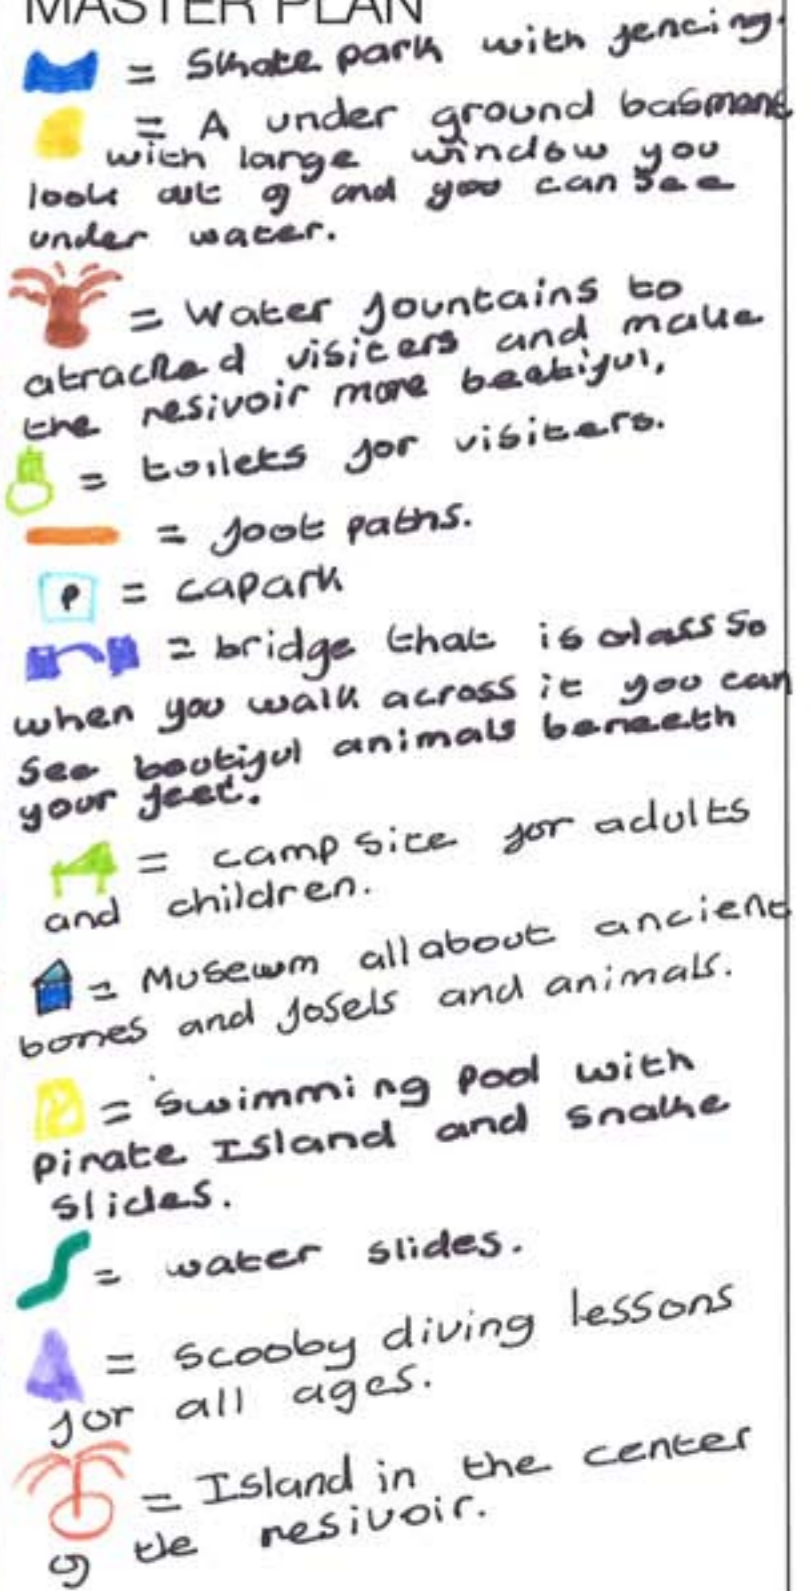 MASTER PLAN
= Skate park with fencing.
= A under ground basment
with large window you
look out of and you can see
under water.
= Water fountains to
atracked visiters and make
the resivoir more beatiful,
= toilets for visiters.
= foot paths.
P = capark
= bridge that is glass so
when you walk across it you can
see beutiful animals beneeth
your feet.
= camp site for adults
and children.
= Musewm all about ancient
bones and fosels and animals.
= swimming pool with
pirate Island and snake
slides.
= water slides.
= Scooby diving lessons
for all ages.
= Island in the center
of the resivoir.